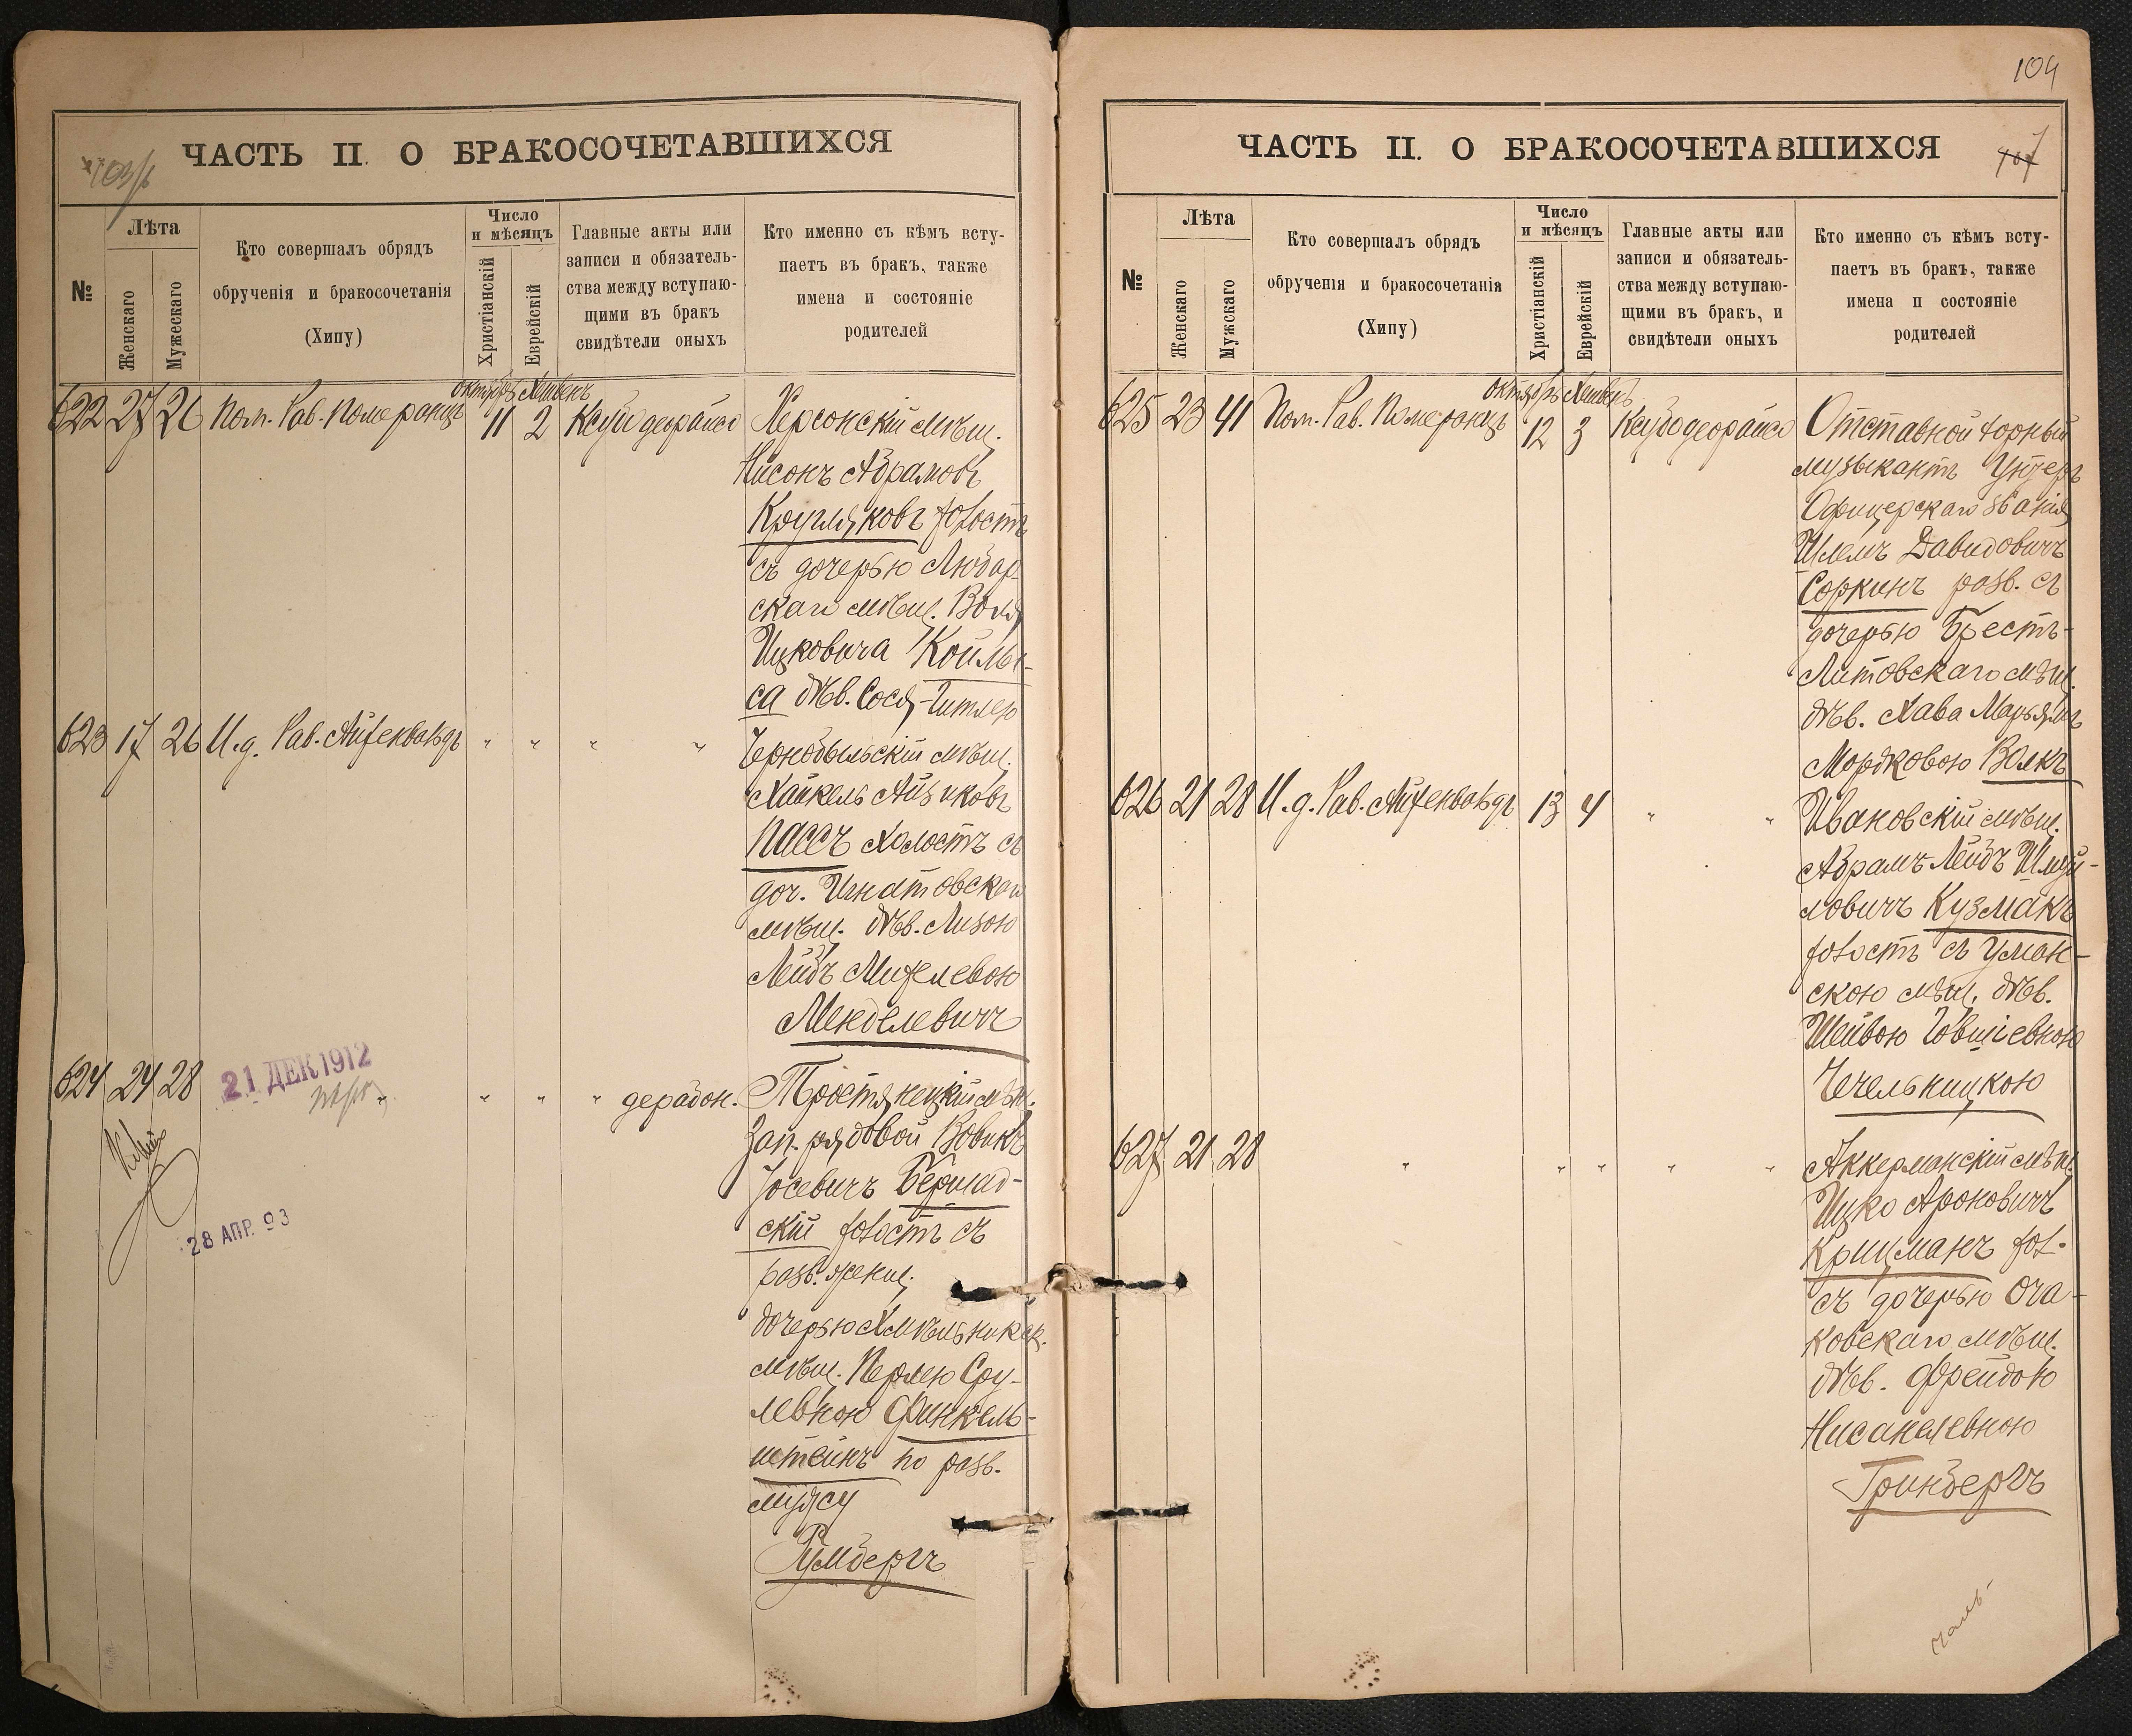 ЧАСТЬ II. О БРАКОСОЧЕТАВШИХСЯ
№
Лѣта
Женскаго
Мужескаго
Кто совершалъ обрядъ
обрученія и бракосочетанія
(Хипу)
Число
и мѣсяцъ
Христіанскій
Еврейскій
Главные акты или
записи и обязатель-
ства между вступаю-
щими въ бракъ
свидѣтели оныхъ
Кто именно съ кѣмъ всту-
паетъ въ бракъ, также
имена и состояніе
родителей
октябрь Хешвенъ
622 27 26 Пом. Рав. Померанцъ 11 2 Ксубо деорайсо Херсонскій мѣщ.
Нисонъ Абрамовъ
Кругляковъ холостъ
съ дочерью Любар-
скаго мѣщ. Воля
Ицковича Койлы-
са дѣв. Сося-Гитлею
623 17 26 И.д. Рав. Айзенвальдъ " " " " Чернобыльскій мѣщ.
Хайкель Айзиковъ
Пассъ холостъ съ
доч. Игнатовскаго
мѣщ. дѣв. Лизою
Лейбъ Михелевою
Менделевичъ
624 24 28 " " " " дерабон. Тростянецкій мѣщ.
21 ДЕК 1912
Зап. рядовой Вовикъ
Іосевичъ Бершад-
скій холостъ съ
28 АПР. 93
разв. женщ.
дочерью Хмѣльникск.
мѣщ. Перлею Сру-
левною Финкель-
штейнъ по разв.
мужу
Гумбергъ
104
ЧАСТЬ II. О БРАКОСОЧЕТАВШИХСЯ
№
Лѣта
Женскаго
Мужскаго
Кто совершалъ обрядъ
обрученія и бракосочетанія
(Хипу)
Число
и мѣсяцъ
Христіанскій
Еврейскій
Главные акты или
записи и обязатель-
ства между вступаю-
щими въ бракъ, и
свидѣтели оныхъ
Кто именно съ кѣмъ всту-
паетъ въ бракъ, также
имена и состояніе
родителей
октябрь Хешвенъ
625 23 41 Пом. Рав. Померанцъ 12 3 Ксубо деорайсо Отставной горный
музыкантъ Унтеръ
Офицерскаго званія
Шлемъ Давидовичъ
Соркинъ разв. съ
дочерью Брестъ-
Литовскаго мѣщ.
дѣв. Хава Марьямъ
Мордковою Волкъ
626 21 28 И.д. Рав. Айзенвальдъ 13 4 " " Ивановскій мѣщ.
Абрамъ Лейбъ Шмуй-
ловичъ Кузмакъ
холостъ съ Уман-
скою мѣщ. дѣв.
Шейвою Іовшіевною
Чечельницкою
627 21 28 " " " " " Аккерманскій мѣщ.
Ицко Ароновичъ
Крицманъ хол.
съ дочерью Оча-
ковскаго мѣщ.
дѣв. Фрейдою
Нисанелевною
Гринбергъ